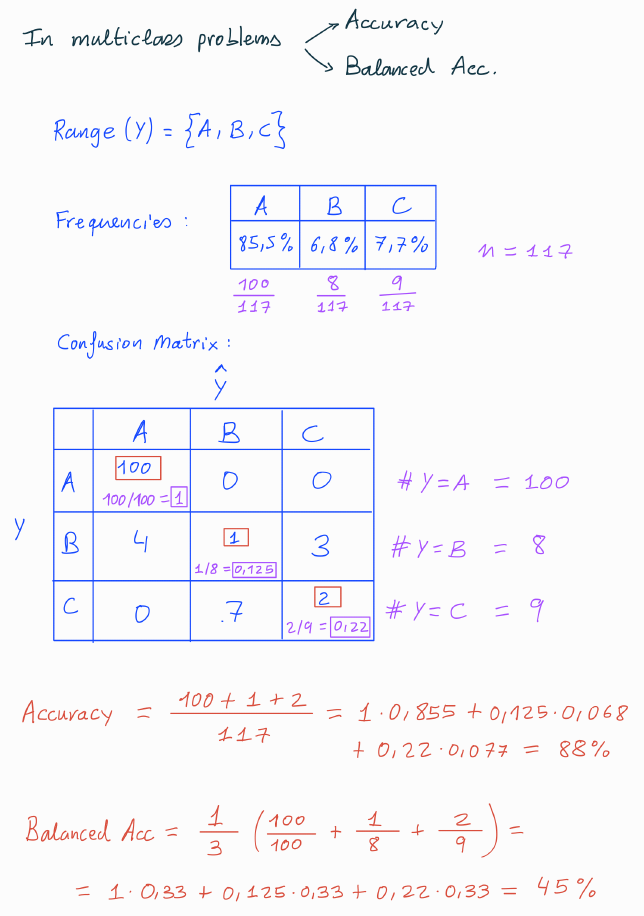 In multiclass problems
Accuracy
Balanced Acc.
Range (Y) = {A, B, C}
Frequencies :
A B C
85,5% 6,8% 7,7%
n = 117
100/117 8/117 9/117
Confusion Matrix :
Ŷ
A B C
A 100 0 0
100/100 = 1
# Y=A = 100
Y
B 4 1 3
1/8 = 0,125
# Y=B = 8
C 0 .7 2
2/9 = 0,22
# Y=C = 9
Accuracy = (100 + 1 + 2)/117 = 1·0,855 + 0,125·0,068
+ 0,22·0,077 = 88%
Balanced Acc = 1/3 (100/100 + 1/8 + 2/9) =
= 1·0,33 + 0,125·0,33 + 0,22·0,33 = 45%